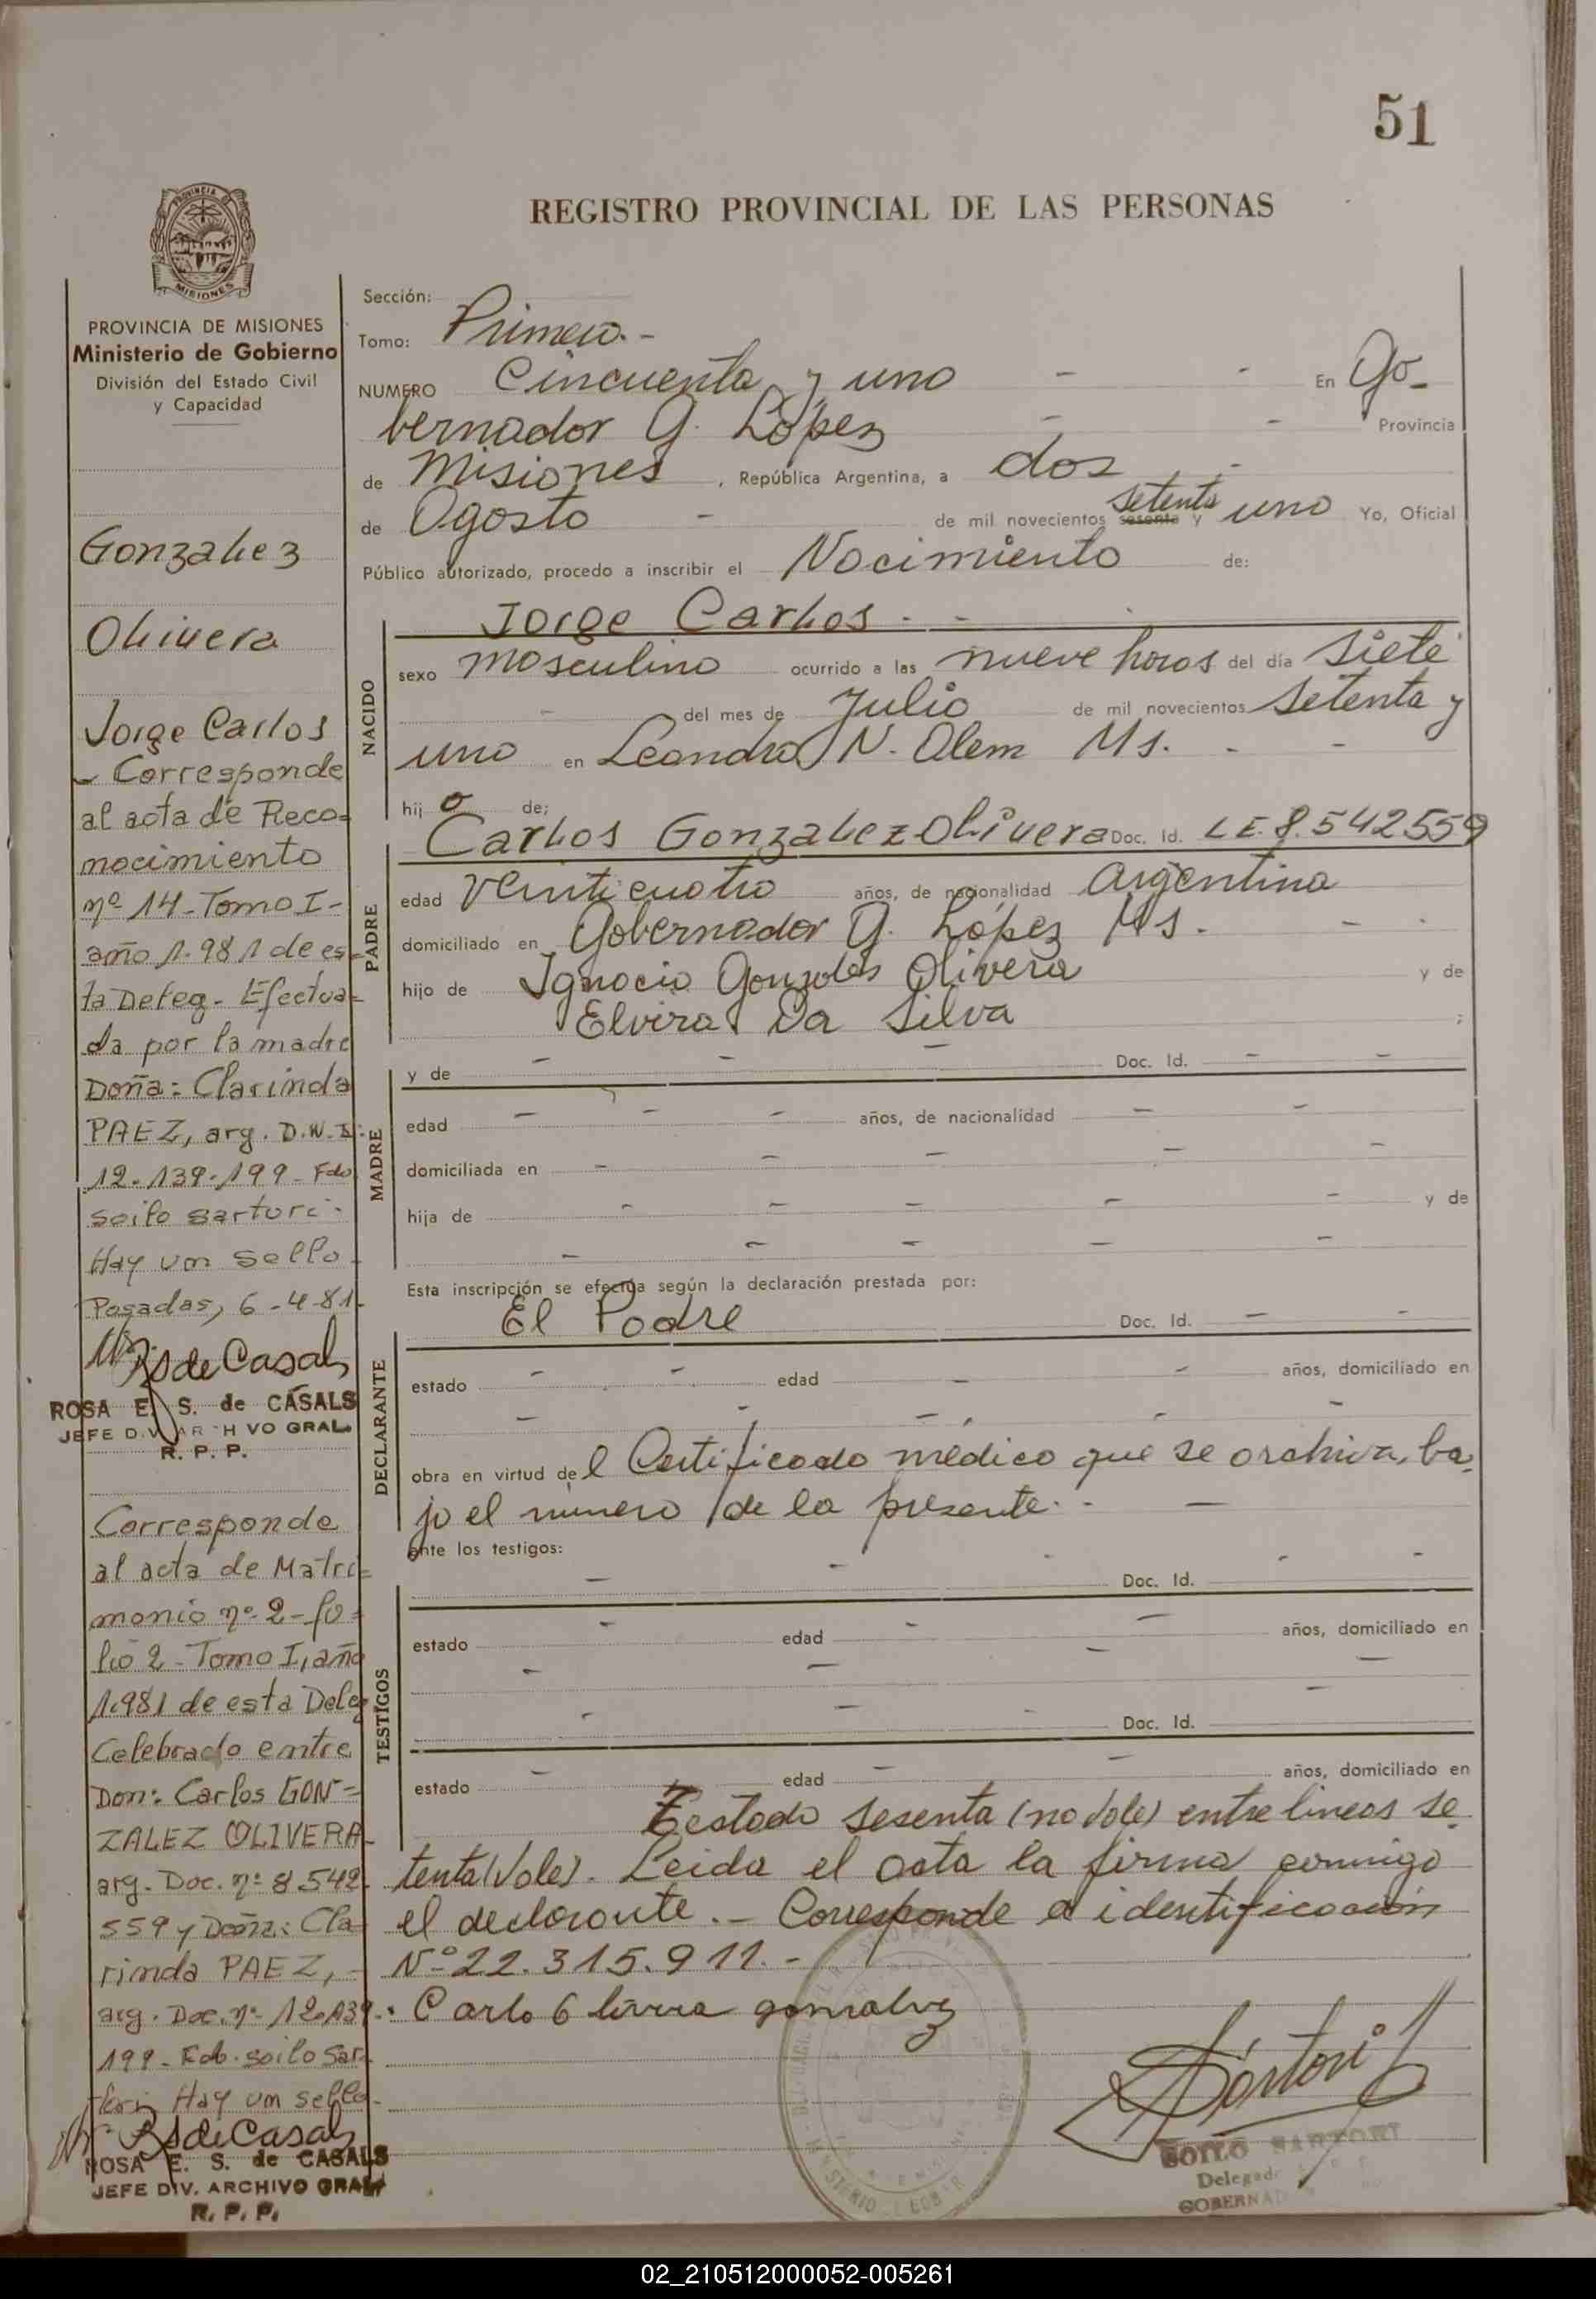 51
REGISTRO PROVINCIAL DE LAS PERSONAS
PROVINCIA
MISIONES
PROVINCIA DE MISIONES
Ministerio de Gobierno
División del Estado Civil
y Capacidad
Gonzalez
Olivera
Jorge Carlos
- Corresponde
al acta de Reco-
nocimiento
nº 14 - Tomo I -
año 1.981 de es-
ta Deleg - Efectua-
da por la madre
Doña: Clarinda
PAEZ, arg. D.N.I:
12.139.199 - Fdo
Soilo Sartori -
Hay un sello
Posadas, 6-4-81-
RS de Casals
ROSA E. S. de CASALS
JEFE DIV. ARCHIVO GRAL.
R. P. P.
Corresponde
al acta de Matri-
monio nº 2 - fo-
lio 2 - Tomo I, año
1.981 de esta Deleg
Celebrado entre
Don: Carlos GON=
ZALEZ OLIVERA-
arg. Doc. nº 8.542-
559 y Doña: Cla-
rinda PAEZ, -
arg. Doc. nº 12.139.
199 - Fdo. Soilo Sar-
tori Hay un sello-
RS de Casals
ROSA E. S. de CASALS
JEFE DIV. ARCHIVO GRAL.
R. P. P.
Sección:
Tomo: Primero.-
NUMERO Cincuenta y uno - - En Go-
bernador G. López - - Provincia
de Misiones, República Argentina, a dos -
de Agosto - de mil novecientos sesenta y setenta uno Yo, Oficial
Público autorizado, procedo a inscribir el Nacimiento de:
NACIDO
Jorge Carlos - -
sexo masculino ocurrido a las nueve horas del día siete
- del mes de Julio de mil novecientos setenta y
uno en Leandro N. Alem Ms. - -
hijo de;
PADRE
Carlos Gonzalez Olivera Doc. Id. L E. 8.542559
edad Veinticuatro años, de nacionalidad Argentina
domiciliado en Gobernador G. López Ms. - -
hijo de Ignacio Gonzales Olivera y de
Elvira Da Silva ;
MADRE
y de - - - Doc. Id. - -
edad - - - años, de nacionalidad - -
domiciliada en - - - - -
hija de - - - - - y de
- - - - -
Esta inscripción se efectúa según la declaración prestada por:
DECLARANTE
El Padre Doc. Id. - -
estado - - edad - - años, domiciliado en
- - - - -
obra en virtud del Certificado médico que se archiva, ba-
jo el número de la presente.- -
ante los testigos:
TESTIGOS
- - - Doc. Id. - -
estado - edad - - años, domiciliado en
- - - -
- - - Doc. Id. -
estado - edad - - años, domiciliado en
Testado sesenta (no vale) entre lineas se-
tenta (Vale). Leida el acta la firma conmigo
el declarante.- Corresponde a identificación
Nº 22.315.911.-
Carlo Olivera gonzalez
Sartori
SOILO SARTORI
Delegado
GOBERNA
02_210512000052-005261